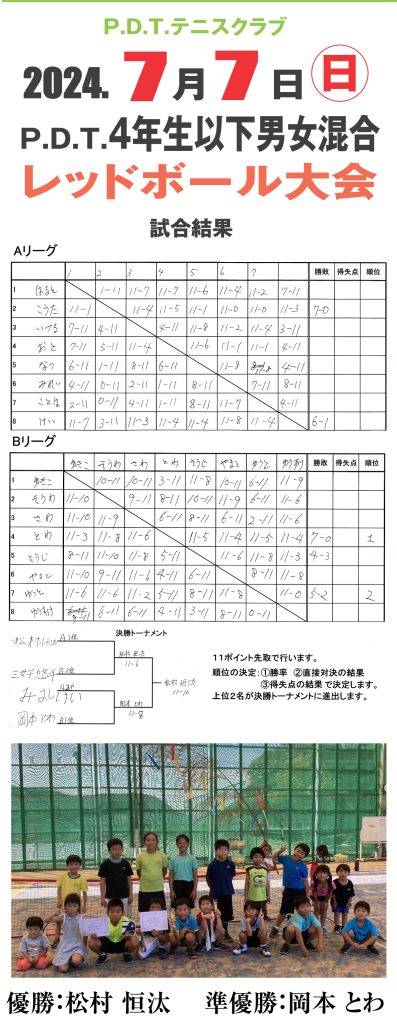 P.D.T.テニスクラブ
2024. 7月7日(日)
P.D.T.4年生以下男女混合
レッドボール大会
試合結果
Aリーグ
1 2 3 4 5 6 7 勝敗 得失点 順位
1 はると 1-11 11-7 11-7 11-6 11-4 11-2 7-11
2 こうた 11-1 11-4 11-5 11-1 11-0 11-0 11-3 7-0
3 いける 7-11 4-11 4-11 11-8 11-2 11-4 3-11
4 おと 7-11 5-11 11-4 11-6 11-1 11-1 4-11
5 なつ 6-11 1-11 8-11 6-11 11-8 4-11
6 みれい 4-11 0-11 2-11 1-11 8-11 7-11 8-11
7 ことは 2-11 0-11 4-11 1-11 8-11 11-7 4-11
8 けい 11-7 3-11 11-3 11-4 11-4 11-8 11-4 6-1
Bリーグ
そうわ さわ とわ そうじ やまと ゆうと 勝敗 得失点 順位
1 10-11 10-11 3-11 11-8 10-11 6-11 11-9
2 そうわ 11-10 9-11 8-11 10-11 11-9 6-11 11-6
3 さわ 11-10 11-9 6-11 8-11 6-11 2-11 11-6
4 とわ 11-3 11-8 11-6 11-5 11-4 11-5 11-4 7-0 1
5 そうじ 8-11 11-10 11-8 5-11 11-6 11-8 11-3 4-3
6 やまと 11-10 9-11 11-6 4-11 6-11 8-11 11-8
7 ゆうと 11-6 11-6 11-2 5-11 8-11 11-8 11-0 5-2 2
8 9-11 6-11 6-11 4-11 3-11 8-11 0-11
決勝トーナメント
A1位
松村 恒汰
11-6
B2位
松村 恒汰
11-10
A2位
岡本 とわ
11-8
岡本 とわ B1位
11ポイント先取で行います。
順位の決定:①勝率 ②直接対決の結果
③得失点の結果 で決定します。
上位2名が決勝トーナメントに進出します。
優勝:松村 恒汰 準優勝:岡本 とわ